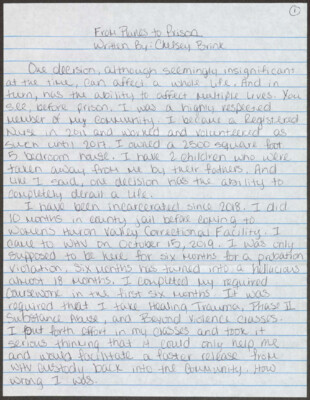 1
From Prunes to Prison
Written By: Chelsey Brink
One decision, although seemingly insignificant
at the time, can affect a whole life. And in
turn, has the ability to affect multiple lives. You
see, before prison, I was a highly respected
member of my community. I became a Registered
Nurse in 2011 and worked and volunteered as
such until 2017. I owned a 2500 square foot
5 bedroom house. I have 2 children who were
taken away from me by their fathers. And
like I said, one decision has the ability to
completely derail a life.
I have been incarcerated since 2018. I did
10 months in county jail before coming to
Women's Huron Valley Correctional Facility. I
came to WHV on October 15, 2019. I was only
supposed to be here for six months for a probation
violation. Six months has turned into a hellacious
almost 18 months. I completed my required
coursework in the first six months. It was
required that I take Healing Trauma, Phase II
Substance Abuse, and Beyond Violence classes.
I put forth effort in my classes and took it
serious thinking that it could only help me
and would facilitate a faster release from
WHV custody back into the community. How
wrong I was.